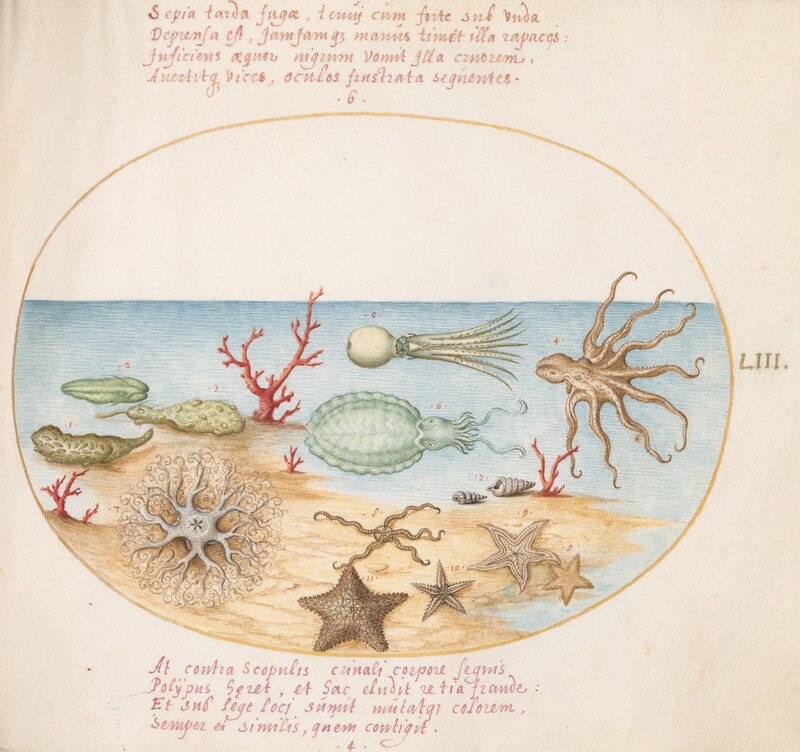 Sepia tarda fugæ, tenuj cum forte sub vnda
Deprensa est, Jamjamqȝ manus timet illa rapaces:
Inficiens æquor nigrum vomit Jlla cruorem,
Avertitqȝ vices, oculos frustrata sequentes.
.6.
5
4
LIII.
2
3
6
1
12
7
8
9
9
10
11
At contra scopulis crinali corpore segnis
Polÿpus hæret, et hac eludit retia fraude:
Et sub lege locj sumit mutatqȝ colorem,
Semper ei similis, quem contigit.
.4.